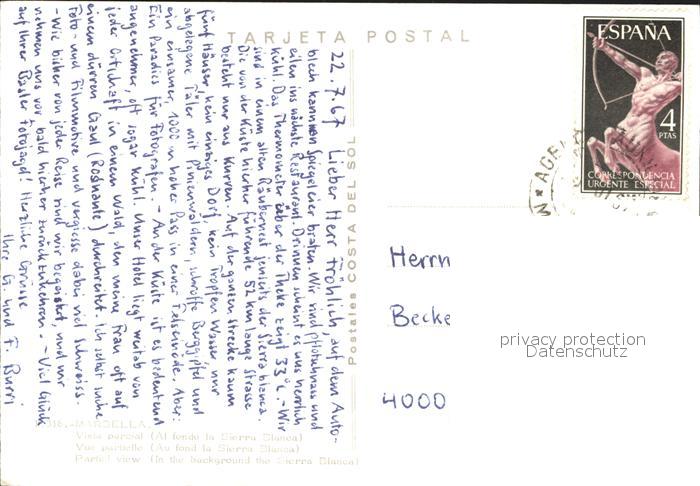 TARJETA POSTAL
ESPAÑA
4
PTAS
CORRESPONDENCIA
URGENTE ESPECIAL
Postales COSTA DEL SOL
22.7.67 Lieber Herr Fröhlich, auf dem Auto-
blech kann man Spiegeleier braten. Wir sind pflotschnass und
eilen ins nächste Restaurant. Drinnen scheint es uns herrlich
kühl. Das Thermometer über der Theke zeigt 33°C. - Wir
sind in einem alten Räubernest jenseits der Sierra blanca.
Die von der Küste hierher führende 52 km lange Strasse
besteht nur aus Kurven. Auf der ganzen Strecke kaum
fünf Häuser, kein einziges Dorf, kein Tropfen Wasser nur
abgelegene Täler mit Pinienwäldern, schroffe Berggipfel und
ein einsamer, 1000 m hoher Pass in einer Felseinöde. Aber:
Ein Paradies für Fotografen. - An der Küste ist es bedeutend
angenehmer, oft sogar kühl. Unser Hotel liegt weitab von
jeder Ortschaft in einem Wald, den meine Frau oft auf
einem dürren Gaul (Rosinante) durchreitet. Ich selbst suche
Foto- und Filmmotive und vergiesse dabei viel Schweiss.
- Wie bisher von jeder Reise sind wir begeistert, und wir
nehmen uns vor bald hierher zurückzukehren. - Viel Glück
auf Ihrer Basler Fotojagd! Herzliche Grüsse
Ihre G. und F. Burri
Herrn
Becke
4000
privacy protection
Datenschutz
MARBELLA
Vista parcial (Al fondo la Sierra Blanca)
Vue partielle (Au fond la Sierra Blanca)
Partial view (In the background the Sierra Blanca)